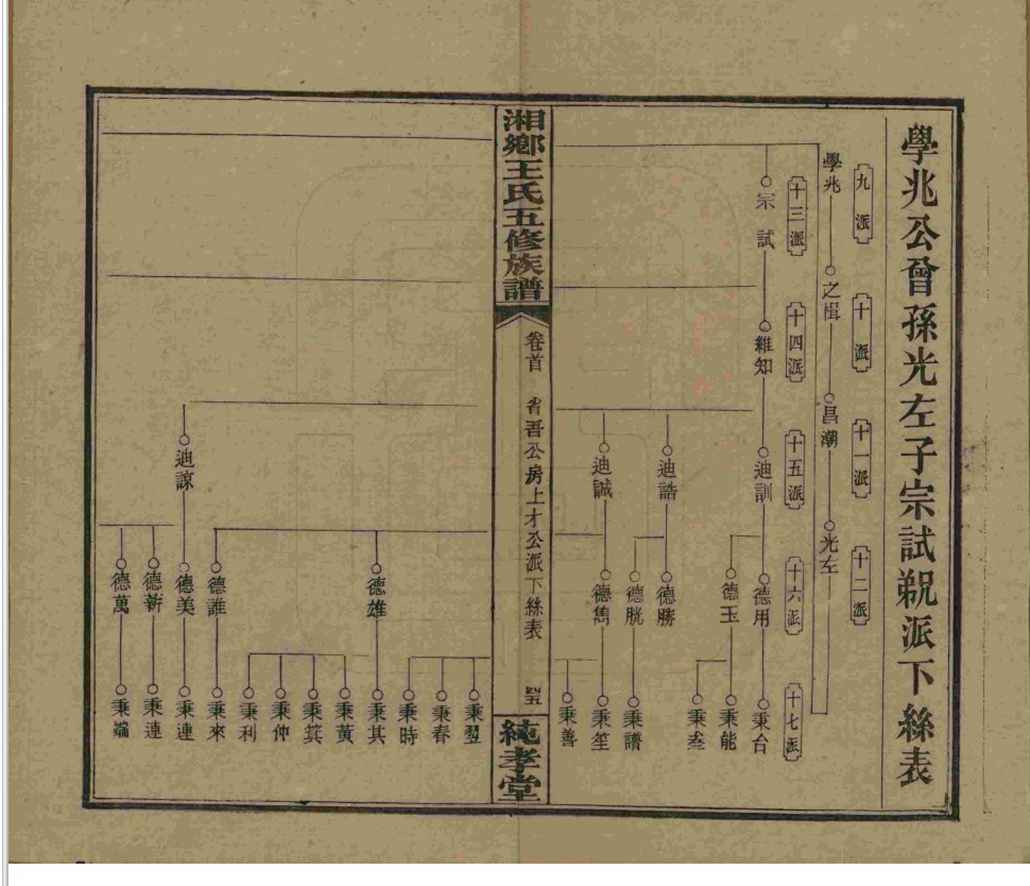 學兆公曾孫光左子宗試
派下絲表
九派
十派
十一派
十二派
學兆
之楫
昌潮
光左
十三派
十四派
十五派
十六派
十七派
宗試
維知
迪訓
德用
秉台
德玉
秉能
秉
迪誥
德勝
德胱
秉譜
迪誠
德雋
秉笙
秉善
湘鄉王氏五修族譜
卷首
省吾公房上才公派下絲表
純孝堂
秉翌
秉春
秉時
德雄
秉其
秉黄
秉箕
秉仲
秉利
德誰
秉來
迪諒
德美
秉連
德新
秉連
德萬
秉